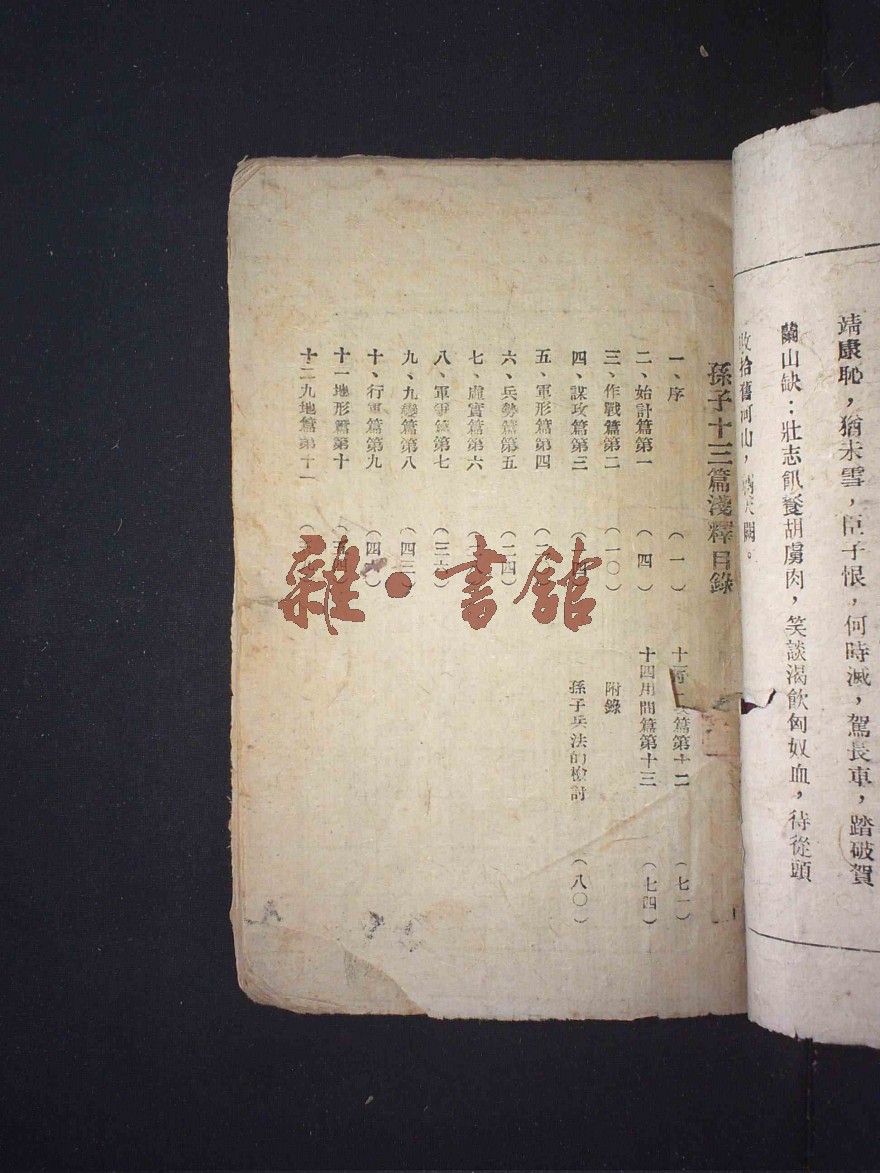 靖康恥，猶未雪，臣子恨，何時滅，駕長車，踏破賀
蘭山缺：壯志飢餐胡虜肉，笑談渴飲匈奴血，待從頭
收拾舊河山，闕。
孫子十三篇淺釋目錄
一、序 （一）
二、始計篇第一 （四）
三、作戰篇第二 （一〇）
四、謀攻篇第三
五、軍形篇第四
六、兵勢篇第五 （二四）
七、虛實篇第六
八、軍爭篇第七 （三六）
九、九變篇第八 （四三）
十、行軍篇第九
十一地形篇第十
十二九地篇第十一
篇第十二 （七一）
十四用間篇第十三 （七四）
附錄
孫子兵法的檢討 （八〇）
雜·書館